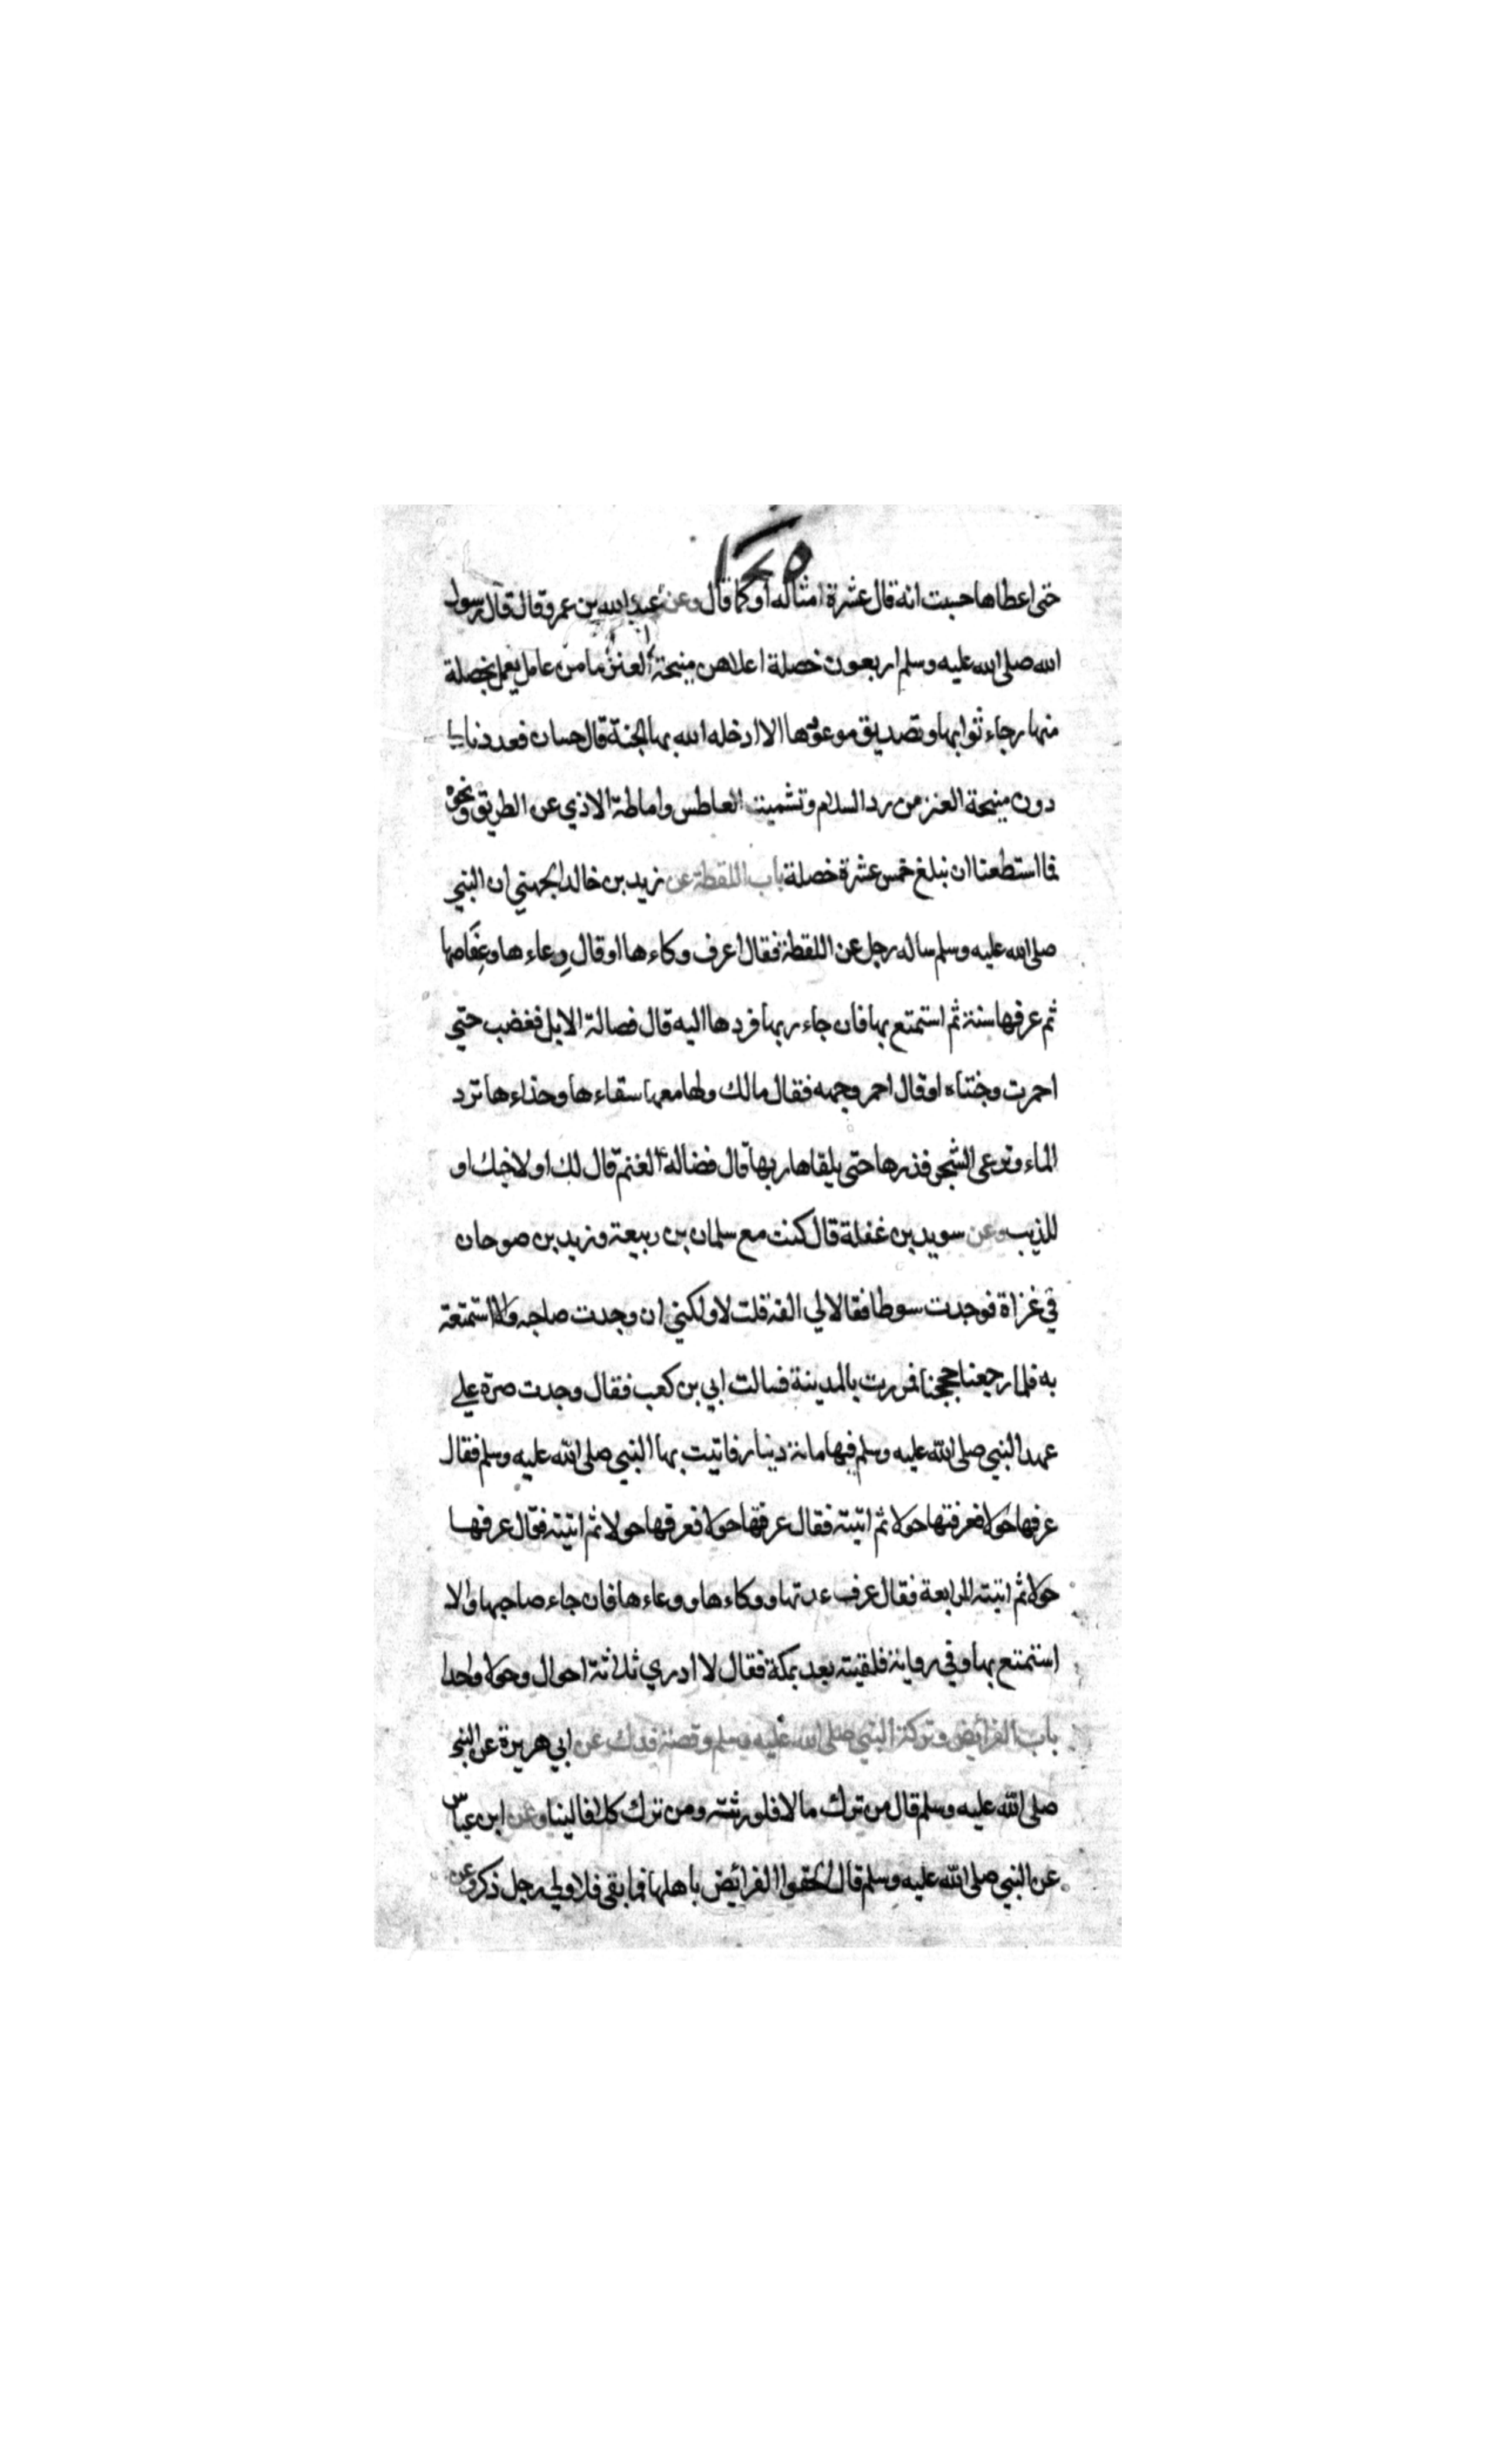 ١٤٥
حتى اعطاها حسبت انه قال عشرة امثاله او كما قال وعن عبد الله بن عمرو قال قال رسول
الله صلى الله عليه وسلم اربعون خصلة اعلاهن منيحة العنز ما من عامل يعمل بخصلة
منها رجاء ثوابها وتصديق موعودها الا ادخله الله بها الجنة قال حسان فعددنا
دون منيحة العنز من رد السلام وتشميت العاطس واماطة الاذي عن الطريق ونحوه
فما استطعنا ان نبلغ خمس عشرة خصلة باب اللقطة عن زيد بن خالد الجهني ان النبي
صلى الله عليه وسلم ساله رجل عن اللقطة فقال اعرف وكاءها او قال وِعاءها وعِفَاصها
ثم عرفها سنة ثم استمتع بها فان جاء ربها فردها اليه قال فصالة الابل فغضب حتي
احمرت وجنتاه او قال احمر وجهه فقال مالك ولها معها سقاءها وحذاءها ترد
الماء وترعى الشجر فذرها حتى يلقاها ربها قال فضالة الغنم قال لك او لاخيك او
للذيب وعن سويد بن غفلة قال كنت مع سلمان بن ربيعة وزيد بن صوحان
في غزاة فوجدت سوطا فقالا لي القه قلت لا ولكني ان وجدت صاحبه والا استمتعة
به فلما رجعنا حججنا فمررت بالمدينة فسالت ابي بن كعب فقال وجدت صرة علي
عهد النبي صلى الله عليه وسلم فيها مائة دينار فاتيت بها النبي صلى الله عليه وسلم فقال
عرفها حولا فعرفتها حولا ثم اتيته فقال عرفها حولا فعرفها حولا ثم اتيته فقال عرفها
حولا ثم اتيته الرابعة فقال عرف عدتها ووكاءها ووعاءها فان جاء صاحبها والا
استمتع بها وفي رواية فلقيته بعد بمكة فقال لا ادري ثلاثة احوال وحولا واحدا
باب الفرائض وتركة النبي صلى الله عليه وسلم وقصة فدك عن ابي هريرة عن النبي
صلى الله عليه وسلم قال من ترك مالا فلورثته ومن ترك كلا فالينا وعن ابن عباس
عن النبي صلى الله عليه وسلم قال الحقوا الفرائض باهلها فما بقى فلاولي رجل ذكر وعن